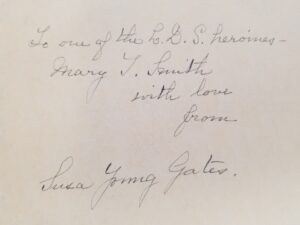 To one of the L.D.S. heroines-
Mary T. Smith
with love
from
Susa Young Gates.